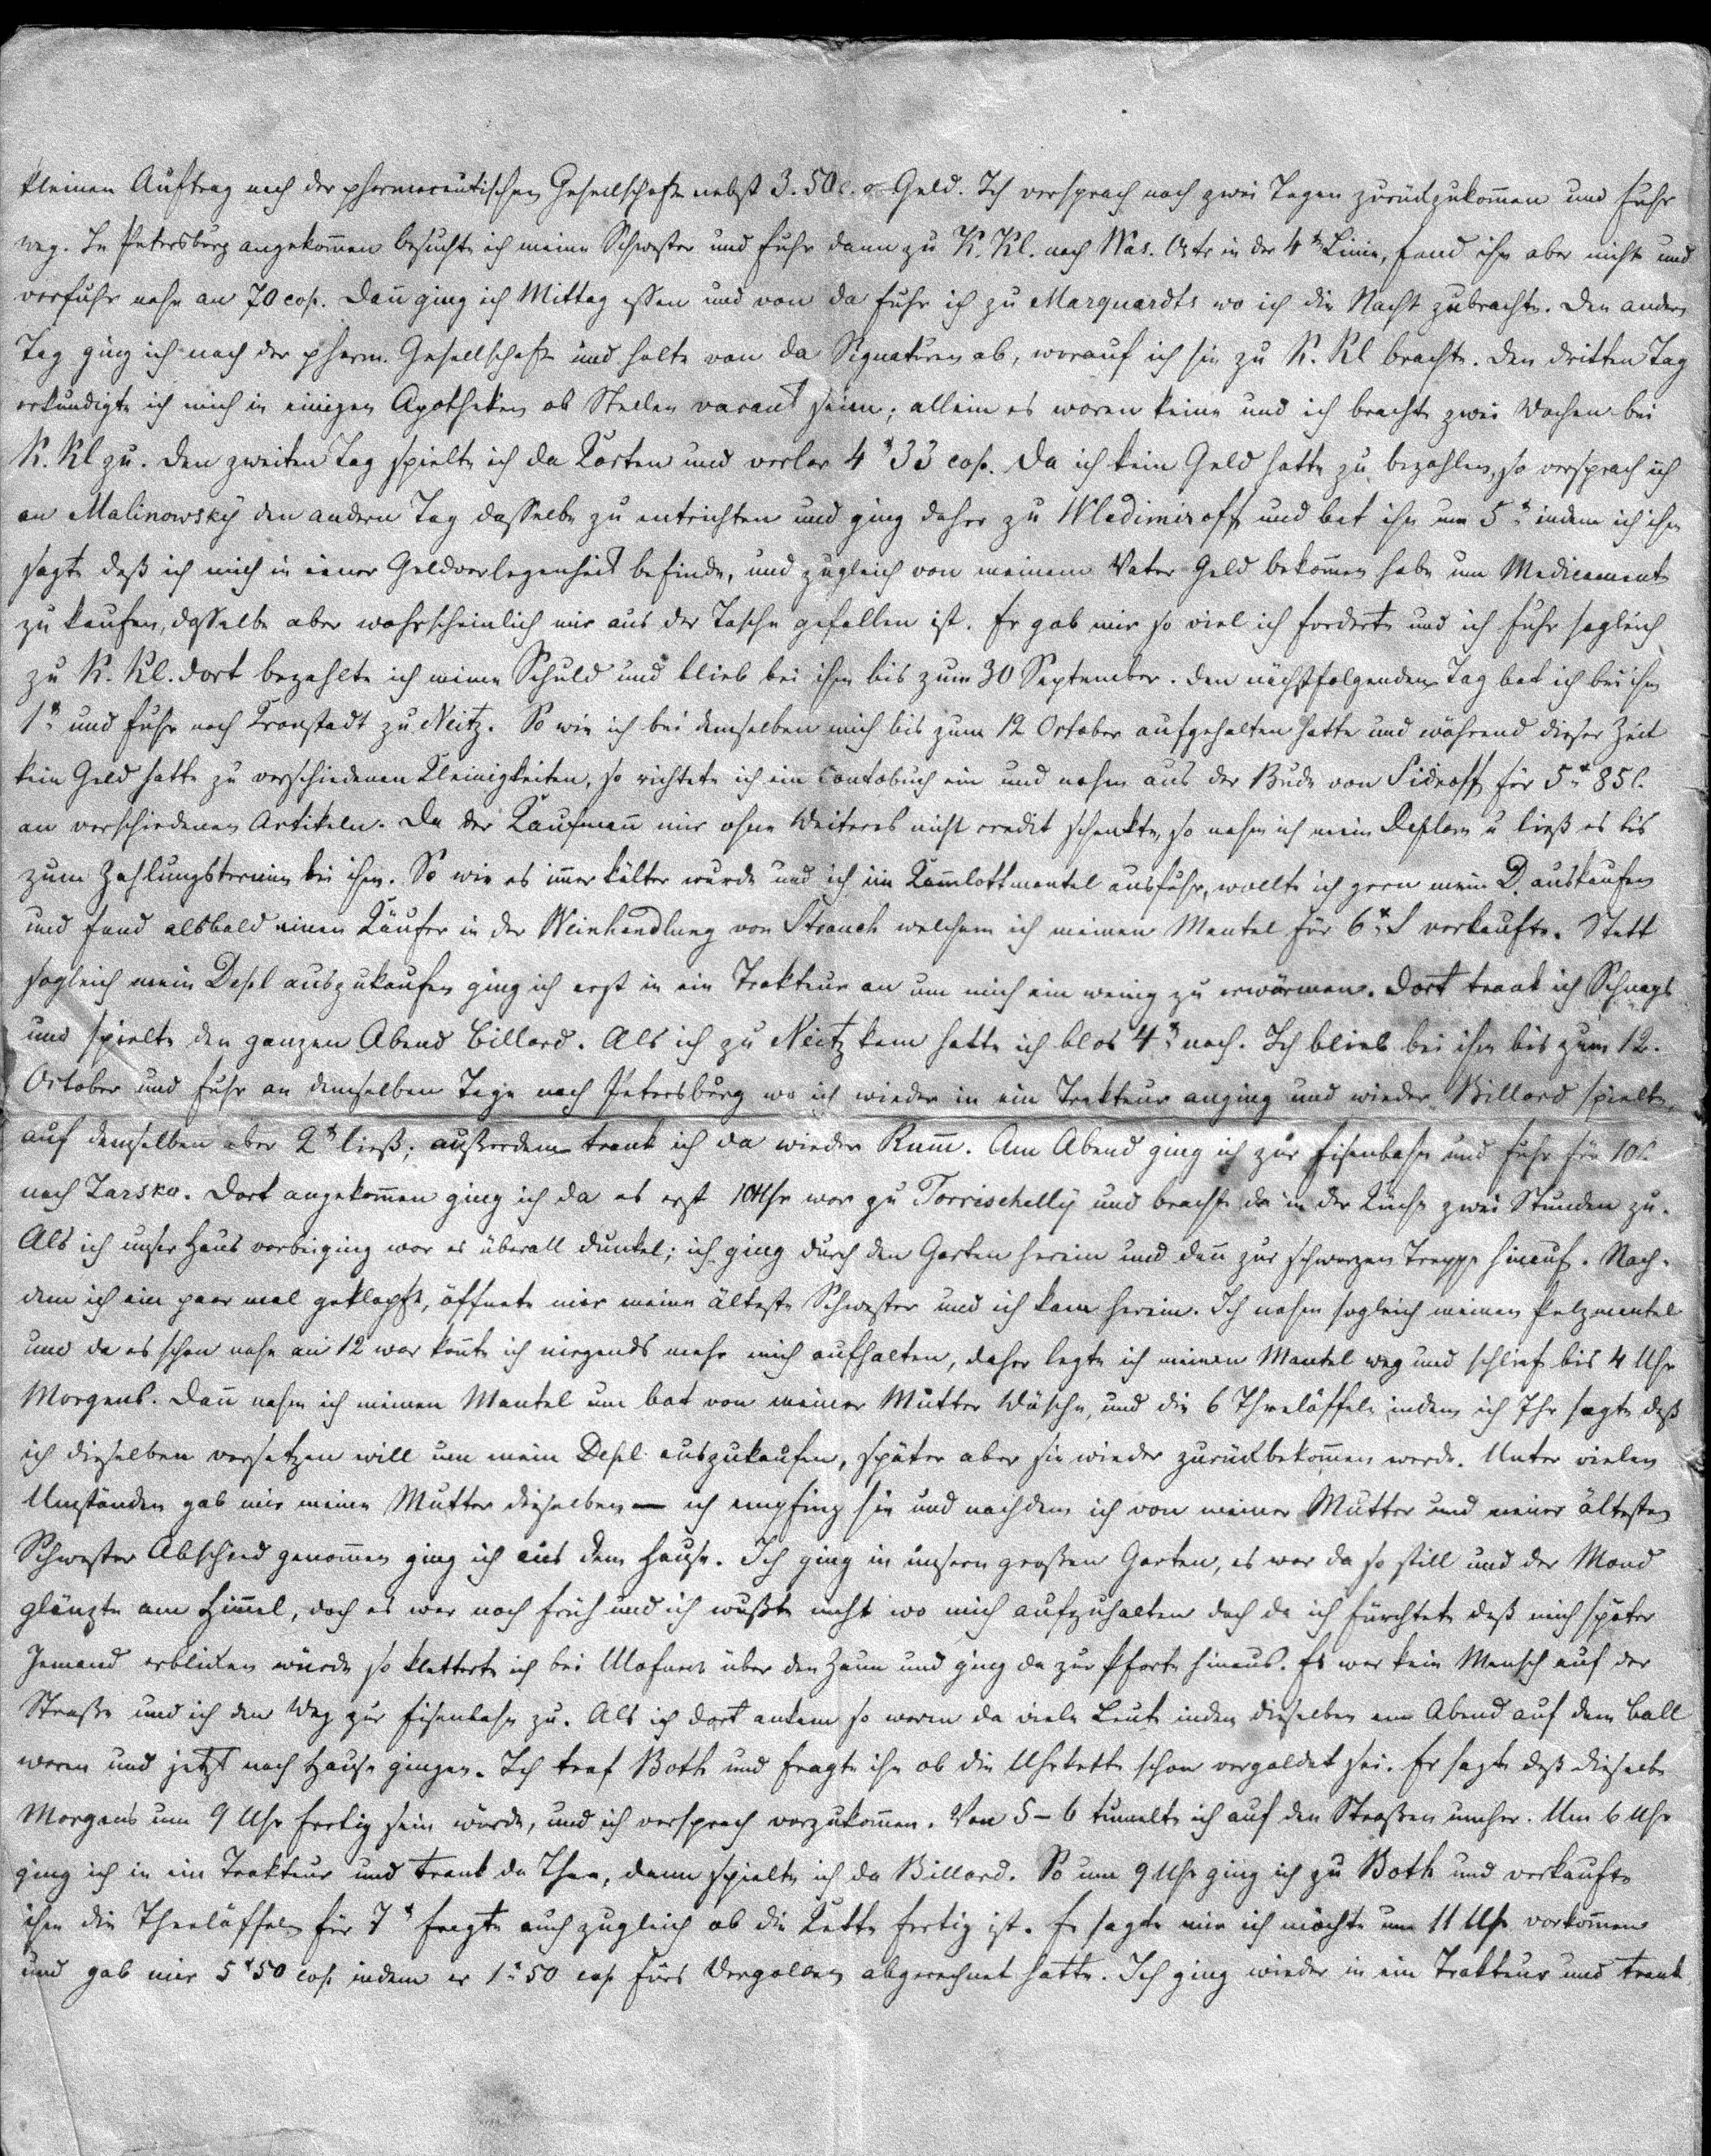 kleinen Auftrag nach der pharmaceutischen Gesellschaft nebst 3. 50 c. Geld. Ich versprach nach zwei Tagen zurückzukom̄en und fuhr
weg. In Petersburg angekom̄en besuchte ich meine Schwester und fuhr dann zu K. Kl. nach Was. Ostr in der 4ten Linie, fand ihn aber nicht und
verfuhr nahe an 70 cop. Dan̄ ging ich Mittag essen und von da fuhr ich zu Marquardts wo ich die Nacht zubrachte. Den andern
Tag ging ich nach der pharm. Gesellschaft und holte von da Signaturen ab, worauf ich sie zu K. Kl brachte. Den dritten Tag
erkundigte ich mich in einigen Apotheken ob Stellen vacant seien; allein es waren keine und ich brachte zwei Wochen bei
K. Kl zu. Den zweiten Tag spielte ich da Karten und verlor 4 33 cop. Da ich kein Geld hatte zu bezahlen, so versprach ich
an Malinowsky den andern Tag dasselbe zu entrichten und ging daher zu Wladimiroff und bat ihn um 5 indem ich ihm
sagte daß ich mich in einer Geldverlegenheit befinde, und zugleich von meinem Vater Geld bekom̄en habe um Medicamente
zu kaufen, dasselbe aber wahrscheinlich mir aus der Tasche gefallen ist. Er gab mir so viel ich forderte und ich fuhr sogleich
zu K. Kl. dort bezahlte ich meine Schuld und blieb bei ihm bis zum 30 September. Den nächstfolgenden Tag bat ich bei ihm
1 und fuhr nach Kronstadt zu Neitz. So wie ich bei demselben mich bis zum 12 October aufgehalten hatte und während dieser Zeit
kein Geld hatte zu verschiedenen Kleinigkeiten, so richtete ich ein Contobuch ein und nahm aus der Bude von Sidroff für 5 85 c.
an verschiedenen Artikeln. Da der Kaufman̄ mir ohne Weiteres nicht credit schenkte, so nahm ich mein u ließ es bis
zum Zahlungstermin bei ihm. So wie es im̄er kälter wurde und ich im Kam̄lottmantel ausfuhr, wollte ich gern mein D. auskaufen
und fand alsbald einen Käufer in der Weinhandlung von Strauch welchem ich meinen Mantel für 6 S verkaufte. Statt
sogleich mein auszukaufen ging ich erst in ein Trakteur an um mich ein wenig zu erwärmen. Dort trank ich Schnaps
und spielte den ganzen Abend Billard. Als ich zu Neitz kam hatte ich blos 4 noch. Ich blieb bei ihm bis zum 12.
October und fuhr an demselben Tage nach Petersburg wo ich wieder in ein Trakteur anging und wieder Billard spielte,
auf demselben aber 2 ließ; außerdem trank ich da wieder Rum̄. Am Abend ging ich zur Eisenbahn und fuhr für 10 c
nach Zarsko. Dort angekom̄en ging ich da es erst 10 Uhr war zu Torrischelly und brachte da in der Küche zwei Stunden zu.
Als ich unser Haus vorbeiging war es überall dunkel; ich ging durch den Garten herein und dan̄ zur schwarzen Treppe hinauf. Nach-
dem ich ein paar mal geklopft, öffnete mir meine älteste Schwester und ich kam herein. Ich nahm sogleich meinen Pelzmantel
und da es schon nahe an 12 war kon̄te ich nirgends mehr mich aufhalten, daher legte ich meinen Mantel weg und schlief bis 4 Uhr
Morgens. Dan̄ nahm ich meinen Mantel um bat von meiner Mutter Wäsche, und die 6 Theelöffeln indem ich Ihr sagte daß
ich dieselben versetzen will um mein auszukaufen, später aber sie wieder zurückbekom̄en werde. Unter vielen
Umständen gab mir meine Mutter dieselben — ich empfing sie und nachdem ich von meiner Mutter und meiner ältesten
Schwester Abschied genom̄en ging ich aus dem Hause. Ich ging in unsern großen Garten, es war da so still und der Mond
glänzte am Him̄el, doch es war noch früh und ich wußte nicht wo mich aufzuhalten doch da ich fürchtete daß mich später
Jemand erblicken würde so kletterte ich bei über den Zaun und ging da zur Pforte hinaus. Es war kein Mensch auf der
Straße und ich den Weg zur Eisenbahn zu. Als ich dort ankam so waren da viele Leute indem dieselben am Abend auf dem Ball
waren und jetzt nach Hause gingen. Ich traf Both und fragte ihn ob die Uhrkette schon vergoldet sei. Er sagte daß dieselbe
Morgens um 9 Uhr fertig sein würde, und ich versprach vorzukom̄en. Von 5–6 tum̄elte ich auf den Straßen umher. Um 6 Uhr
ging ich in ein Trakteur und trank da Thee, dann spielte ich da Billard. So um 9 Uhr ging ich zu Both und verkaufte
ihm die Theelöffeln für 7 fragte auch zugleich ob die Kette fertig ist. Er sagte mir ich möchte um 11 Uhr vorkom̄en
und gab mir 5 50 cop. indem er 1 50 cop fürs Vergolden abgerechnet hatte. Ich ging wieder in ein Trakteur und trank